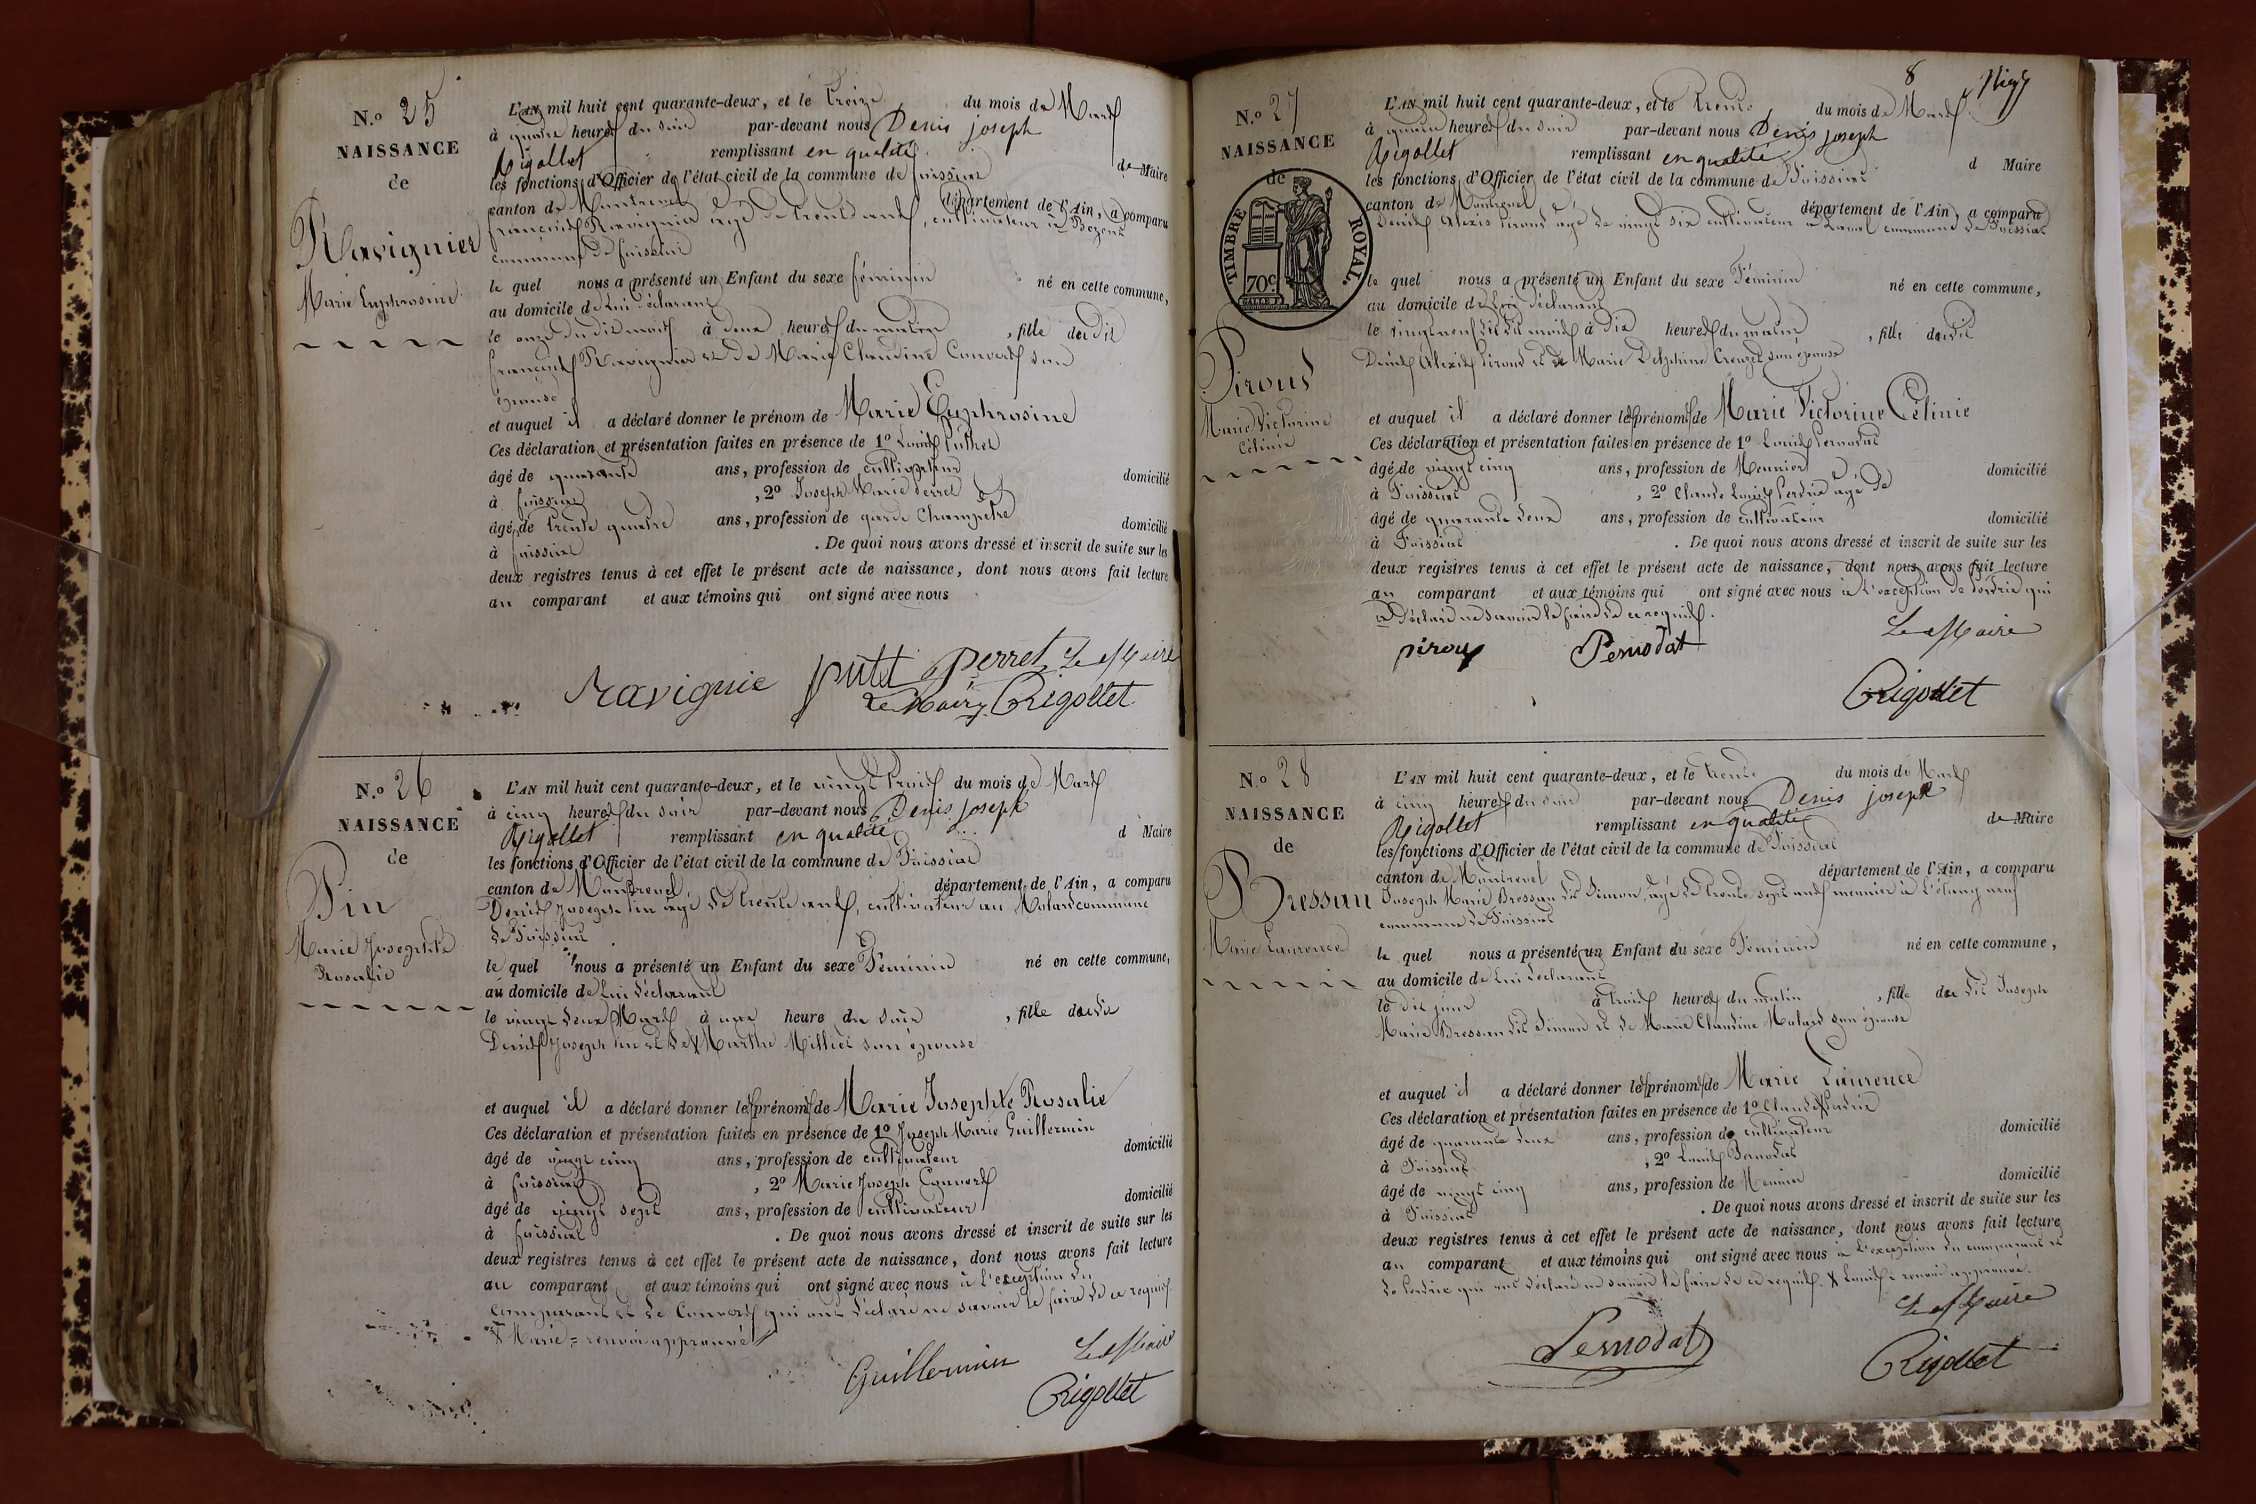 N.º 25
NAISSANCE
de
Ravignier
Marie Euphrosine
L'AN mil huit cent quarante-deux, et le treize du mois de Mars
à quatre heures du soir par-devant nous Denis joseph
Rigollet remplissant en qualité de Maire
les fonctions d'Officier de l'état civil de la commune de foissiat
canton de Montrevel département de l'Ain, a comparu
françois Ravignier agé de trente ans, cultivateur à
commune de foissiat
le quel nous a présenté un Enfant du sexe féminin né en cette commune,
au domicile de Lui déclarant
le onze du dit mois à deux heures du matin, fille du dit
françois Ravignier et de Marie Claudine Convert son
épouse
et auquel il a déclaré donner le prénom de Marie Euphrosine
Ces déclaration et présentation faites en présence de 1º Louis
âgé de quarante ans, profession de cultivateur domicilié
à foissiat, 2º Joseph Marie Perret
âgé de trente quatre ans, profession de garde Champetre domicilié
à foissiat. De quoi nous avons dressé et inscrit de suite sur les
deux registres tenus à cet effet le présent acte de naissance, dont nous avons fait lecture
au comparant et aux témoins qui ont signé avec nous
ravignie perret Le Maire
Le Maire Rigollet
N.º 26
NAISSANCE
de
Pin
Marie Josephte
Rosalie
L'AN mil huit cent quarante-deux, et le vingt trois du mois de Mars
à cinq heures du soir par-devant nous Denis joseph
Rigollet remplissant en qualité d Maire
les fonctions d'Officier de l'état civil de la commune de Foissiat
canton de Montrevel département de l'Ain, a comparu
Denis Joseph Pin agé de trente ans, cultivateur au Molard commune
de Foissiat
le quel nous a présenté un Enfant du sexe Féminin né en cette commune,
au domicile de Lui déclarant
le vingt deux Mars à une heure du soir, fille du dit
Denis Joseph Pin et de Marthe Millet son épouse
et auquel il a déclaré donner les prénoms de Marie Josephte Rosalie
Ces déclaration et présentation faites en présence de 1º Joseph Marie Guillermin
âgé de vingt cinq ans, profession de cultivateur domicilié
à foissiat, 2º Marie Joseph Convert
âgé de vingt sept ans, profession de cultivateur domicilié
à foissiat. De quoi nous avons dressé et inscrit de suite sur les
deux registres tenus à cet effet le présent acte de naissance, dont nous avons fait lecture
au comparant et aux témoins qui ont signé avec nous à l'exception du
comparant et de Convert qui ont déclaré ne savoir le faire de ce requis
Marie = renvoi approuvé
Guillermin Le Maire
Rigollet
8
N.º 27
NAISSANCE
de
TIMBRE ROYAL.
70c.
Piroud
Marie Victorine
Célinie
L'AN mil huit cent quarante-deux, et le trente du mois de Mars
à quatre heures du soir par-devant nous Denis joseph
Rigollet remplissant en qualité d Maire
les fonctions d'Officier de l'état civil de la commune de Foissiat
canton de Montrevel département de l'Ain, a comparu
Denis Alexis Piroud agé de vingt six cultivateur à Laval commune de Foissiat
le quel nous a présenté un Enfant du sexe Féminin né en cette commune,
au domicile de Lui déclarant
le vingt neuf dit du mois à dix heures du matin, fille du dit
Denis Alexis Piroud et de Marie Delphine Creuzet son épouse
et auquel il a déclaré donner les prénoms de Marie Victorine Célinie
Ces déclaration et présentation faites en présence de 1º Louis Pernodat
âgé de vingt cinq ans, profession de Meunier domicilié
à Foissiat, 2º Claude Louis Perdrix agé de
âgé de quarante deux ans, profession de cultivateur domicilié
à Foissiat. De quoi nous avons dressé et inscrit de suite sur les
deux registres tenus à cet effet le présent acte de naissance, dont nous avons fait lecture
au comparant et aux témoins qui ont signé avec nous à l'exception de Perdrix qui
a déclaré ne savoir le faire de ce requis.
pirou Pernodat Le Maire
Rigollet
N.º 28
NAISSANCE
de
Bressan
Marie Laurence
L'AN mil huit cent quarante-deux, et le trente du mois de Mars
à cinq heures du soir par-devant nous Denis joseph
Rigollet remplissant en qualité de Maire
les fonctions d'Officier de l'état civil de la commune de Foissiat
canton de Montrevel département de l'Ain, a comparu
Joseph Marie Bressan dit Simon, agé de trente sept ans meunier à L'étang neuf
commune de Foissiat
le quel nous a présenté un Enfant du sexe Féminin né en cette commune,
au domicile de Lui déclarant
le dit jour à trois heures du matin, fille du dit Joseph
Marie Bressan dit Simon et de Marie Claudine Molard son épouse
et auquel il a déclaré donner les prénoms de Marie Laurence
Ces déclaration et présentation faites en présence de 1º Claude Perdrix
âgé de quarante deux ans, profession de cultivateur domicilié
à Foissiat, 2º Louis Pernodat
âgé de vingt cinq ans, profession de Meunier domicilié
à Foissiat. De quoi nous avons dressé et inscrit de suite sur les
deux registres tenus à cet effet le présent acte de naissance, dont nous avons fait lecture
au comparant et aux témoins qui ont signé avec nous à l'exception du comparant et
de Perdrix qui ont déclaré ne savoir le faire de ce requis. Louis = renvoi approuvé.
Le Maire
Pernodat Rigollet